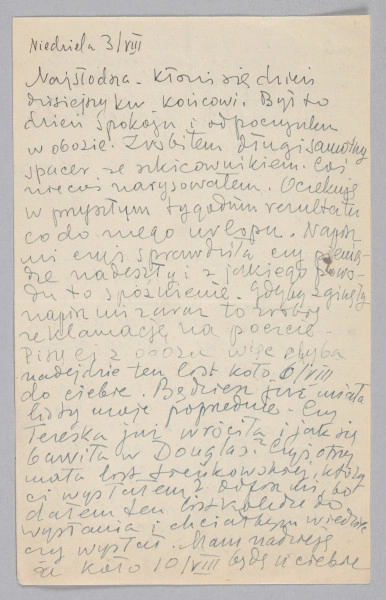 Niedziela 3/VIII
Najsłodsza. Kłoni się dzień
dzisiejszy ku końcowi. Był to
dzień spokoju i odpoczynku
w obozie. Zrobiłem długi samotny
spacer ze szkicownikiem. Coś
niecoś narysowałem. Oczekuję
w przyszłym tygodniu rezultatu
co do mego urlopu. Napisz
mi czyś sprawdziła czy pienią-
dze nadeszły i z jakiego powo-
du to spóźnienie. Gdyby zginęły
napisz mi zaraz to zrobię
reklamację na poczcie.
Piszę z obozu więc chyba
nadejdzie ten list koło 6/VIII
do ciebie. Będziesz już miała
listy moje poprzednie. Czy
Tereska już wróciła i jak się
bawiła w Douglas? Czyś otrzy
mała list
ci wysłałem? bo
dałem ten list koledze do
wysłania i chciałbym wiedzieć
czy wysłał. Mam nadzieję
że koło 10/VIII będę u ciebie